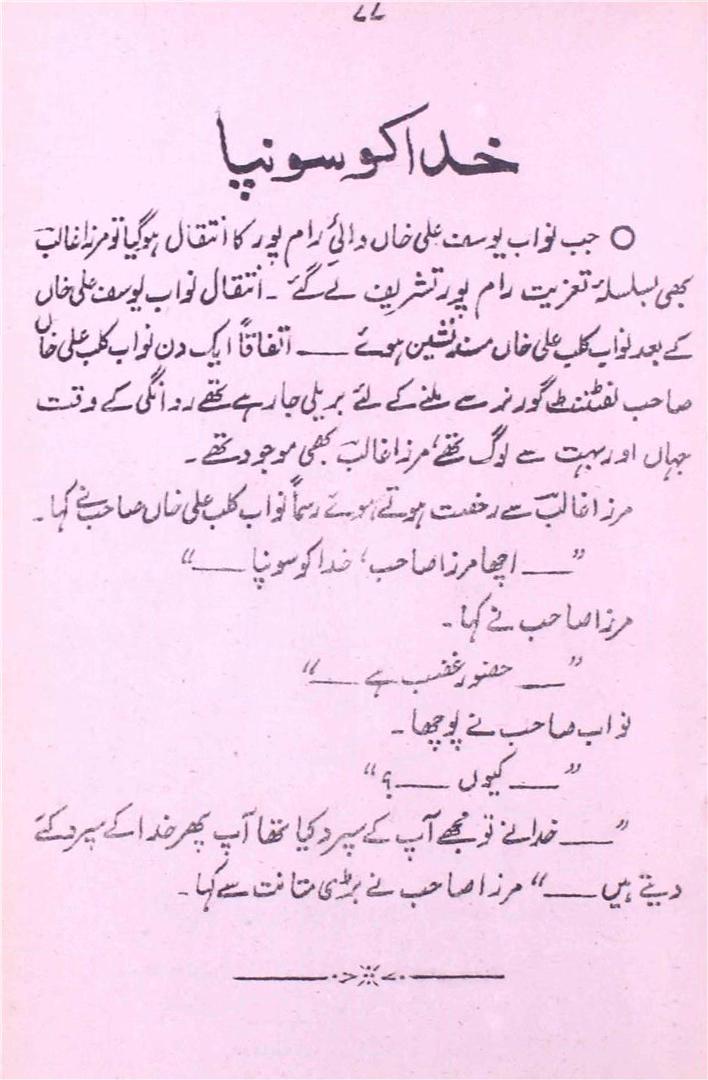 ۷۷
خدا کو سونپا
○ جب نواب یوسف علی خاں والیِ رام پور کا انتقال ہوگیا تو مرزا غالبؔ
بھی بسلسلۂ تعزیت رام پور تشریف لے گئے ۔ انتقال نواب یوسف علی خاں
کے بعد نواب کلب علی خاں مسند نشین ہوئے ــــ اتفاقاً ایک دن نواب کلب علی خاں
صاحب لفٹننٹ گورنر سے ملنے کے لئے بریلی جارہے تھے روانگی کے وقت
جہاں اور بہت سے لوگ تھے، مرزا غالبؔ بھی موجود تھے ۔
مرزا غالبؔ سے رخصت ہوتے ہوئے رسماً نواب کلب علی خاں صاحب نے کہا ۔
”ــــ اچھا مرزا صاحب، خدا کو سونپا ــــ“
مرزا صاحب نے کہا ۔
”ــــ حضور غضب ہے ــــ“
نواب صاحب نے پوچھا ۔
”ــــ کیوں ــــ؟“
”ــــ خدا نے تو مجھے آپ کے سپرد کیا تھا آپ پھر خدا کے سپرد کئے
دیتے ہیں ــــ“ مرزا صاحب نے بڑی متانت سے کہا ۔